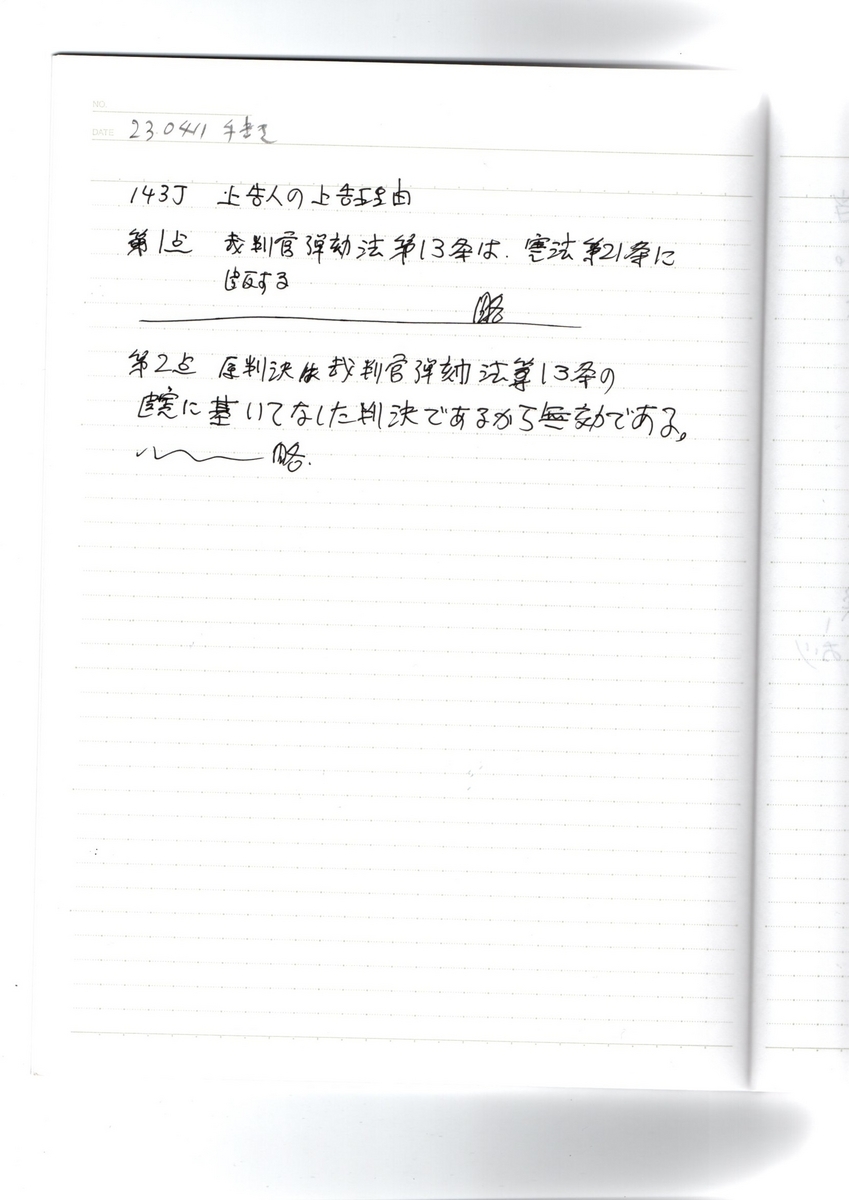 NO.
DATE 23.0411 手書き
143J 上告人の上告理由
第1点 裁判官弾劾法第13条は、憲法第21条に
違反する
略
第2点 原判決は裁判官弾劾法第13条の
違憲に基いてなした判決であるから無効である。
略.